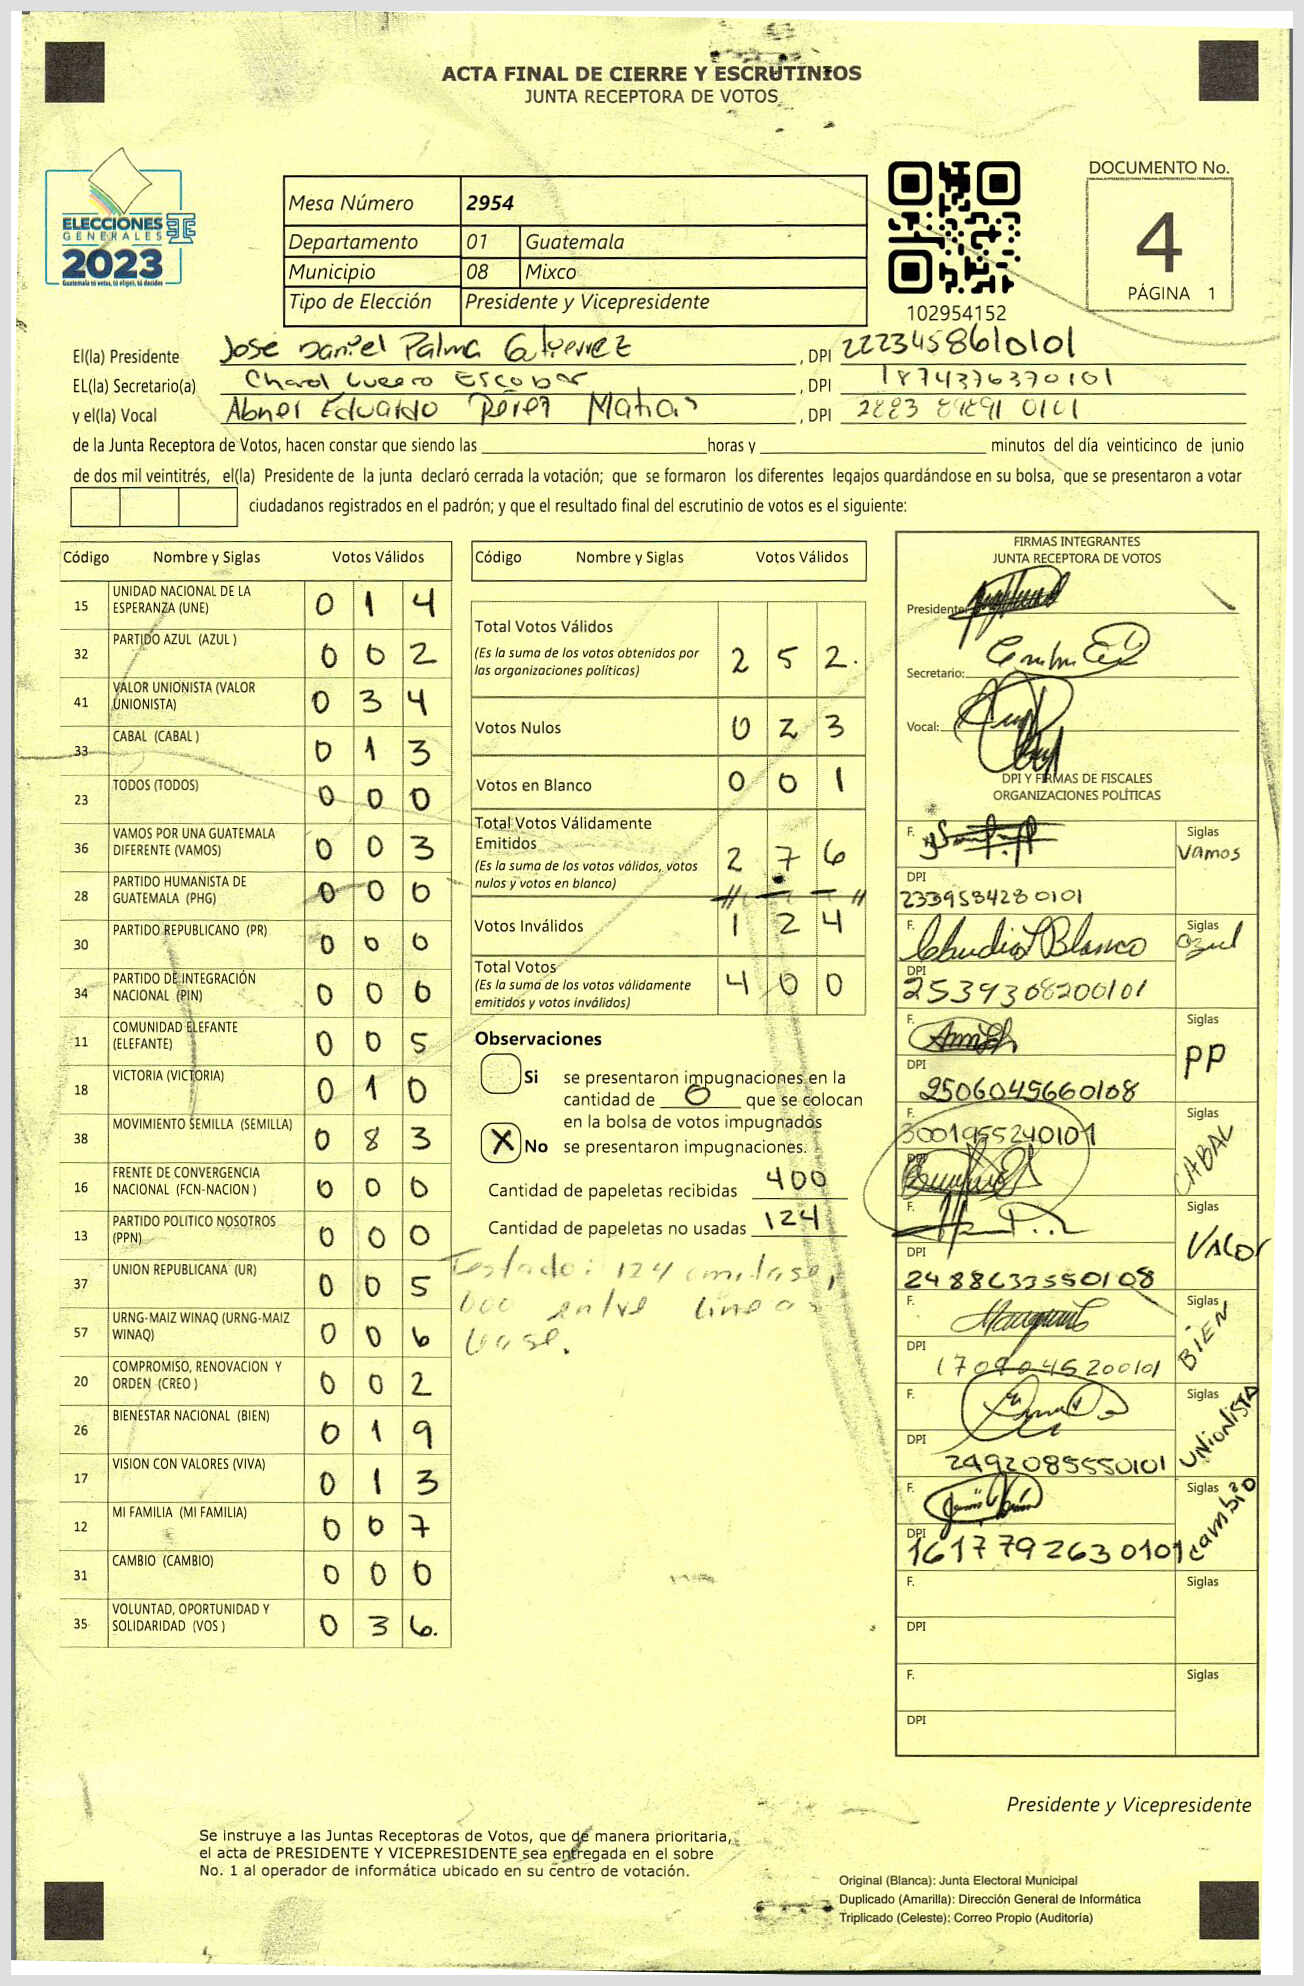 ACTA FINAL DE CIERRE Y ESCRUTINIOS
JUNTA RECEPTORA DE VOTOS
ELECCIONES
GENERALES
2023
Guatemala tú votas, tú eliges, tú decides
Mesa Número 2954
Departamento 01 Guatemala
Municipio 08 Mixco
Tipo de Elección Presidente y Vicepresidente
102954152
DOCUMENTO No.
4
PÁGINA 1
El(la) Presidente José Daniel Palma Gutierrez , DPI 2223458610101
EL(la) Secretario(a) Escobar , DPI 1874376370101
y el(la) Vocal Abner Eduardo Pérez Matias , DPI
de la Junta Receptora de Votos, hacen constar que siendo las horas y minutos del día veinticinco de junio
de dos mil veintitrés, el(la) Presidente de la junta declaró cerrada la votación; que se formaron los diferentes legajos guardándose en su bolsa, que se presentaron a votar
ciudadanos registrados en el padrón; y que el resultado final del escrutinio de votos es el siguiente:
Código Nombre y Siglas Votos Válidos
15 UNIDAD NACIONAL DE LA ESPERANZA (UNE) 0 1 4
32 PARTIDO AZUL (AZUL ) 0 0 2
41 VALOR UNIONISTA (VALOR UNIONISTA) 0 3 4
33 CABAL (CABAL ) 0 1 3
23 TODOS (TODOS) 0 0 0
36 VAMOS POR UNA GUATEMALA DIFERENTE (VAMOS) 0 0 3
28 PARTIDO HUMANISTA DE GUATEMALA (PHG) 0 0 0
30 PARTIDO REPUBLICANO (PR) 0 0 0
34 PARTIDO DE INTEGRACIÓN NACIONAL (PIN) 0 0 0
11 COMUNIDAD ELEFANTE (ELEFANTE) 0 0 5
18 VICTORIA (VICTORIA) 0 1 0
38 MOVIMIENTO SEMILLA (SEMILLA) 0 8 3
16 FRENTE DE CONVERGENCIA NACIONAL (FCN-NACION ) 0 0 0
13 PARTIDO POLITICO NOSOTROS (PPN) 0 0 0
37 UNION REPUBLICANA (UR) 0 0 5
57 URNG-MAIZ WINAQ (URNG-MAIZ WINAQ) 0 0 6
20 COMPROMISO, RENOVACION Y ORDEN (CREO ) 0 0 2
26 BIENESTAR NACIONAL (BIEN) 0 1 9
17 VISION CON VALORES (VIVA) 0 1 3
12 MI FAMILIA (MI FAMILIA) 0 0 7
31 CAMBIO (CAMBIO) 0 0 0
35 VOLUNTAD, OPORTUNIDAD Y SOLIDARIDAD (VOS ) 0 3 6.
Código Nombre y Siglas Votos Válidos
Total Votos Válidos 2 5 2.
(Es la suma de los votos obtenidos por
las organizaciones políticas)
Votos Nulos 0 2 3
Votos en Blanco 0 0 1
Total Votos Válidamente
Emitidos 2 7 6
(Es la suma de los votos válidos, votos
nulos y votos en blanco)
Votos Inválidos 1 2 4
Total Votos 4 0 0
(Es la suma de los votos válidamente
emitidos y votos inválidos)
Observaciones
Si se presentaron impugnaciones en la
cantidad de 0 que se colocan
en la bolsa de votos impugnados
X No se presentaron impugnaciones.
Cantidad de papeletas recibidas 400
Cantidad de papeletas no usadas 124
Testado: 124 omitase,
000 entre lineas
FIRMAS INTEGRANTES
JUNTA RECEPTORA DE VOTOS
Presidente:
Secretario:
Vocal:
DPI Y FIRMAS DE FISCALES
ORGANIZACIONES POLÍTICAS
F. Siglas
Vamos
DPI
2339534280101
F. Claudia L Blanco Siglas
azul
DPI
2539308200101
F. Siglas
PP
DPI
2506045660108
F. 3001955240101
CABAL
DPI
F. Siglas
VALOR
DPI
2488633550108
F. Siglas
BIEN
DPI
1709045200101
F. Siglas
UNIONISTA
DPI
2492085550101
F. Siglas
cambio
DPI
1617792630101
F. Siglas
DPI
F. Siglas
DPI
Presidente y Vicepresidente
Se instruye a las Juntas Receptoras de Votos, que de manera prioritaria,
el acta de PRESIDENTE Y VICEPRESIDENTE sea entregada en el sobre
No. 1 al operador de informática ubicado en su centro de votación.
Original (Blanca): Junta Electoral Municipal
Duplicado (Amarilla): Dirección General de Informática
Triplicado (Celeste): Correo Propio (Auditoría)